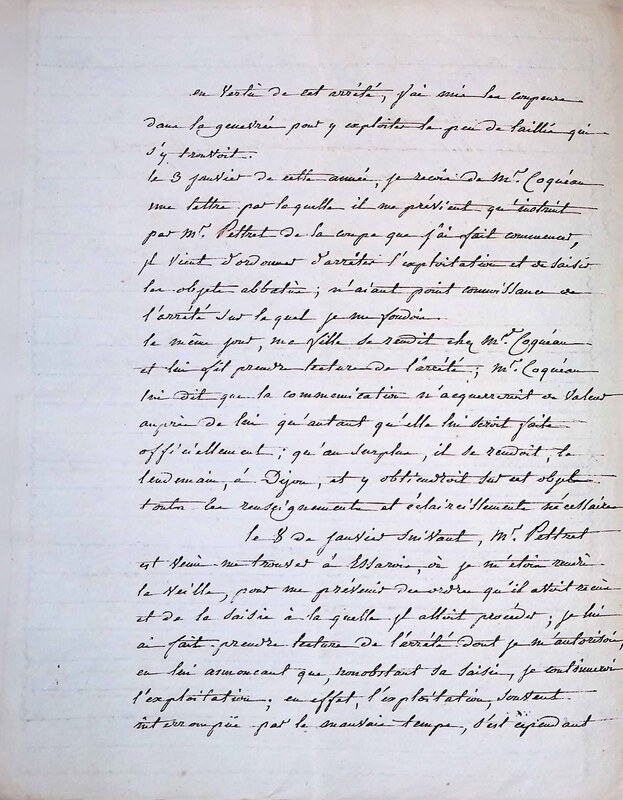 en vertu de cet arrêté, j'ai mis les coupeurs
dans la genevré pour y exploiter le peu de taillis qui
s'y trouvoit.
le 3 janvier de cette année, je recois de Mr. Coquéau
une lettre par laquelle il me prévient qu'instruit
par Mr. Pettret de la coupe que j'ai fait commencer,
il vient d'ordonner d'arrêter l'exploitation et de saisir
les objets abbatus; n'aiant point connoissance de
l'arrêté sur le quel je me fondois.
le même jour, ma fille se rendit chez Mr. Coquéau
et lui fit prendre lecture de l'arrêté; Mr. Coquéau
lui dit que la communication n'acquerreroit de valeur
auprès de lui qu'autant qu'elle lui seroit faite
officiellement; qu'au surplus, il se rendoit, le
lendemain, à Dijon, et y obtiendroit sur cet objet
toutes les renseignements et éclaircissements nécessaires
le 8 de janvier suivant, Mr. Pettret
est venu me trouver à Essarois, où je m'étois rendu
la veille, pour me prévenir des ordres qu'il avoit recus
et de la saisie à la quelle il alloit procéder; je lui
ai fait prendre lecture de l'arrêté dont je m'autorisois,
en lui annoncant que, nonobstant sa saisie, je continuerois
l'exploitation; en effet, l'exploitation, souvent
interrompüe par le mauvais temps, s'est cependant